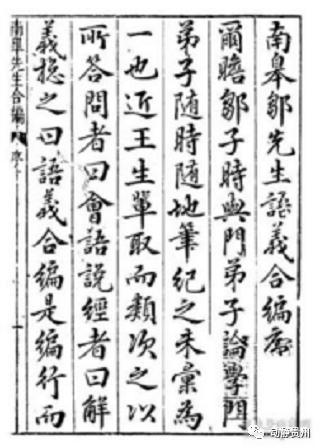 南皋鄒先生語義合編序
爾瞻鄒子時與門弟子論學門
弟子隨時隨地筆紀之未彙為
一也近王生輩取而類次之以
所答問者曰會語說經者曰解
義摠之曰語義合編是編行而
南皋先生合編 序
动静贵州